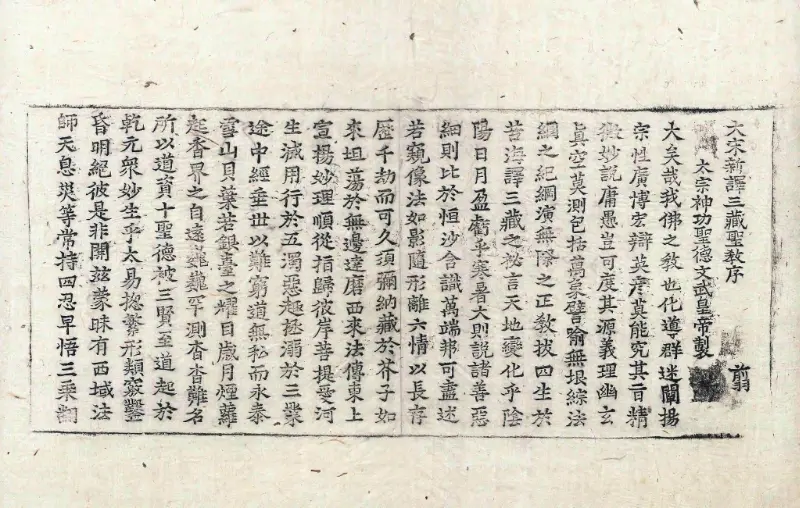 大宋新譯三藏聖教序 翦
太宗神功聖德文武皇帝製
大矣哉我佛之教也化導群迷闡揚
宗性廣博宏辯英彥莫能究其旨精
微妙說庸愚豈可度其源義理幽玄
真空莫測包括萬象譬喻無垠綜法
網之紀綱演無際之正教拔四生於
苦海譯三藏之秘言天地變化乎陰
陽日月盈虧乎寒暑大則說諸善惡
細則比於恒沙含識萬端邦可盡述
若窺像法如影隨形離六情以長存
歷千劫而可久須彌納藏於芥子如
來坦蕩於無邊達磨西來法傳東土
宣揚妙理順從指歸彼岸菩提愛河
生滅用行於五濁惡趣拯溺於三業
途中經垂世以難窮道無私而永泰
雪山貝葉若銀臺之耀目歲月煙蘿
起香界之自遠巍巍罕測杳杳難名
所以道資十聖德被三賢至道起於
乾元衆妙生乎太易揔繁形類竅鑿
昏明絕彼是非開兹蒙昧有西域法
師天息災等常持四忍早悟三乘翻